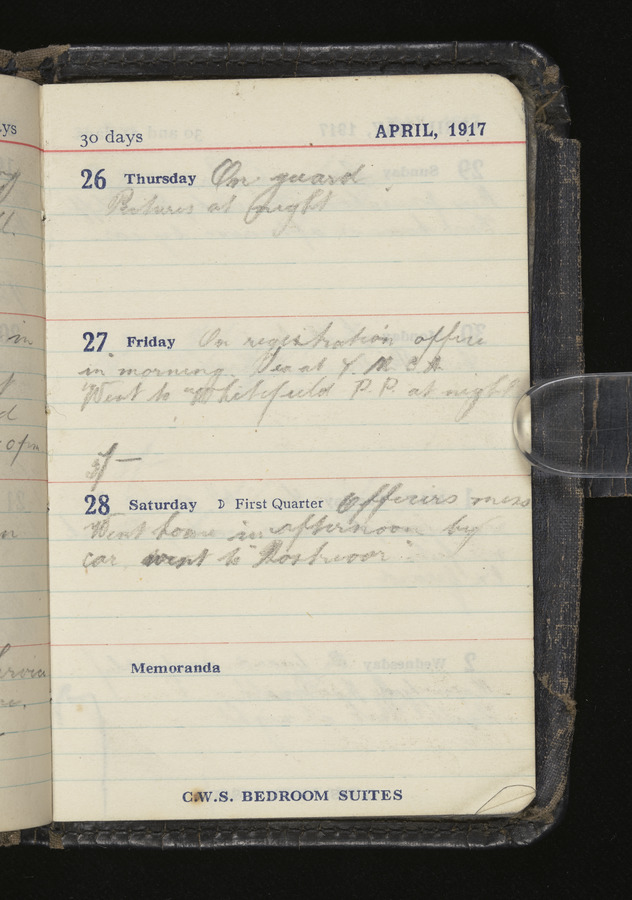 30 days APRIL, 1917
26 Thursday On guard
Pictures at night
27 Friday On registration office
in morning. Tea at Y. M. C. A.
Went to Whitefield P. P. at night
28 Saturday First Quarter Officers mess
Went home in afternoon by
car went to Rostrevor
Memoranda
C.W.S. BEDROOM SUITES